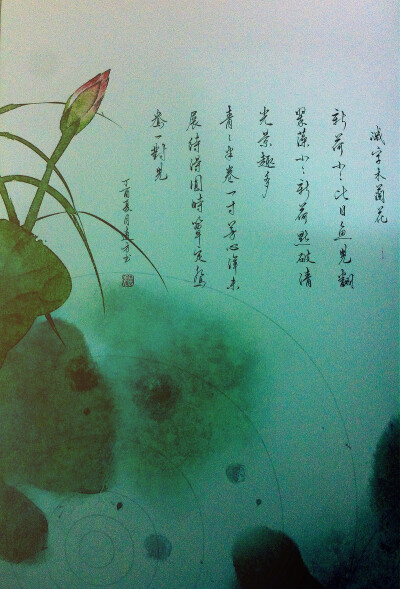 減字木蘭花
新荷小〻比目魚兒翻
翠藻小〻新荷點破清
光景趣多
青〻半卷一寸芳心渾未
展待得圓時罩定鴛
鴦一對兒
丁酉夏月書